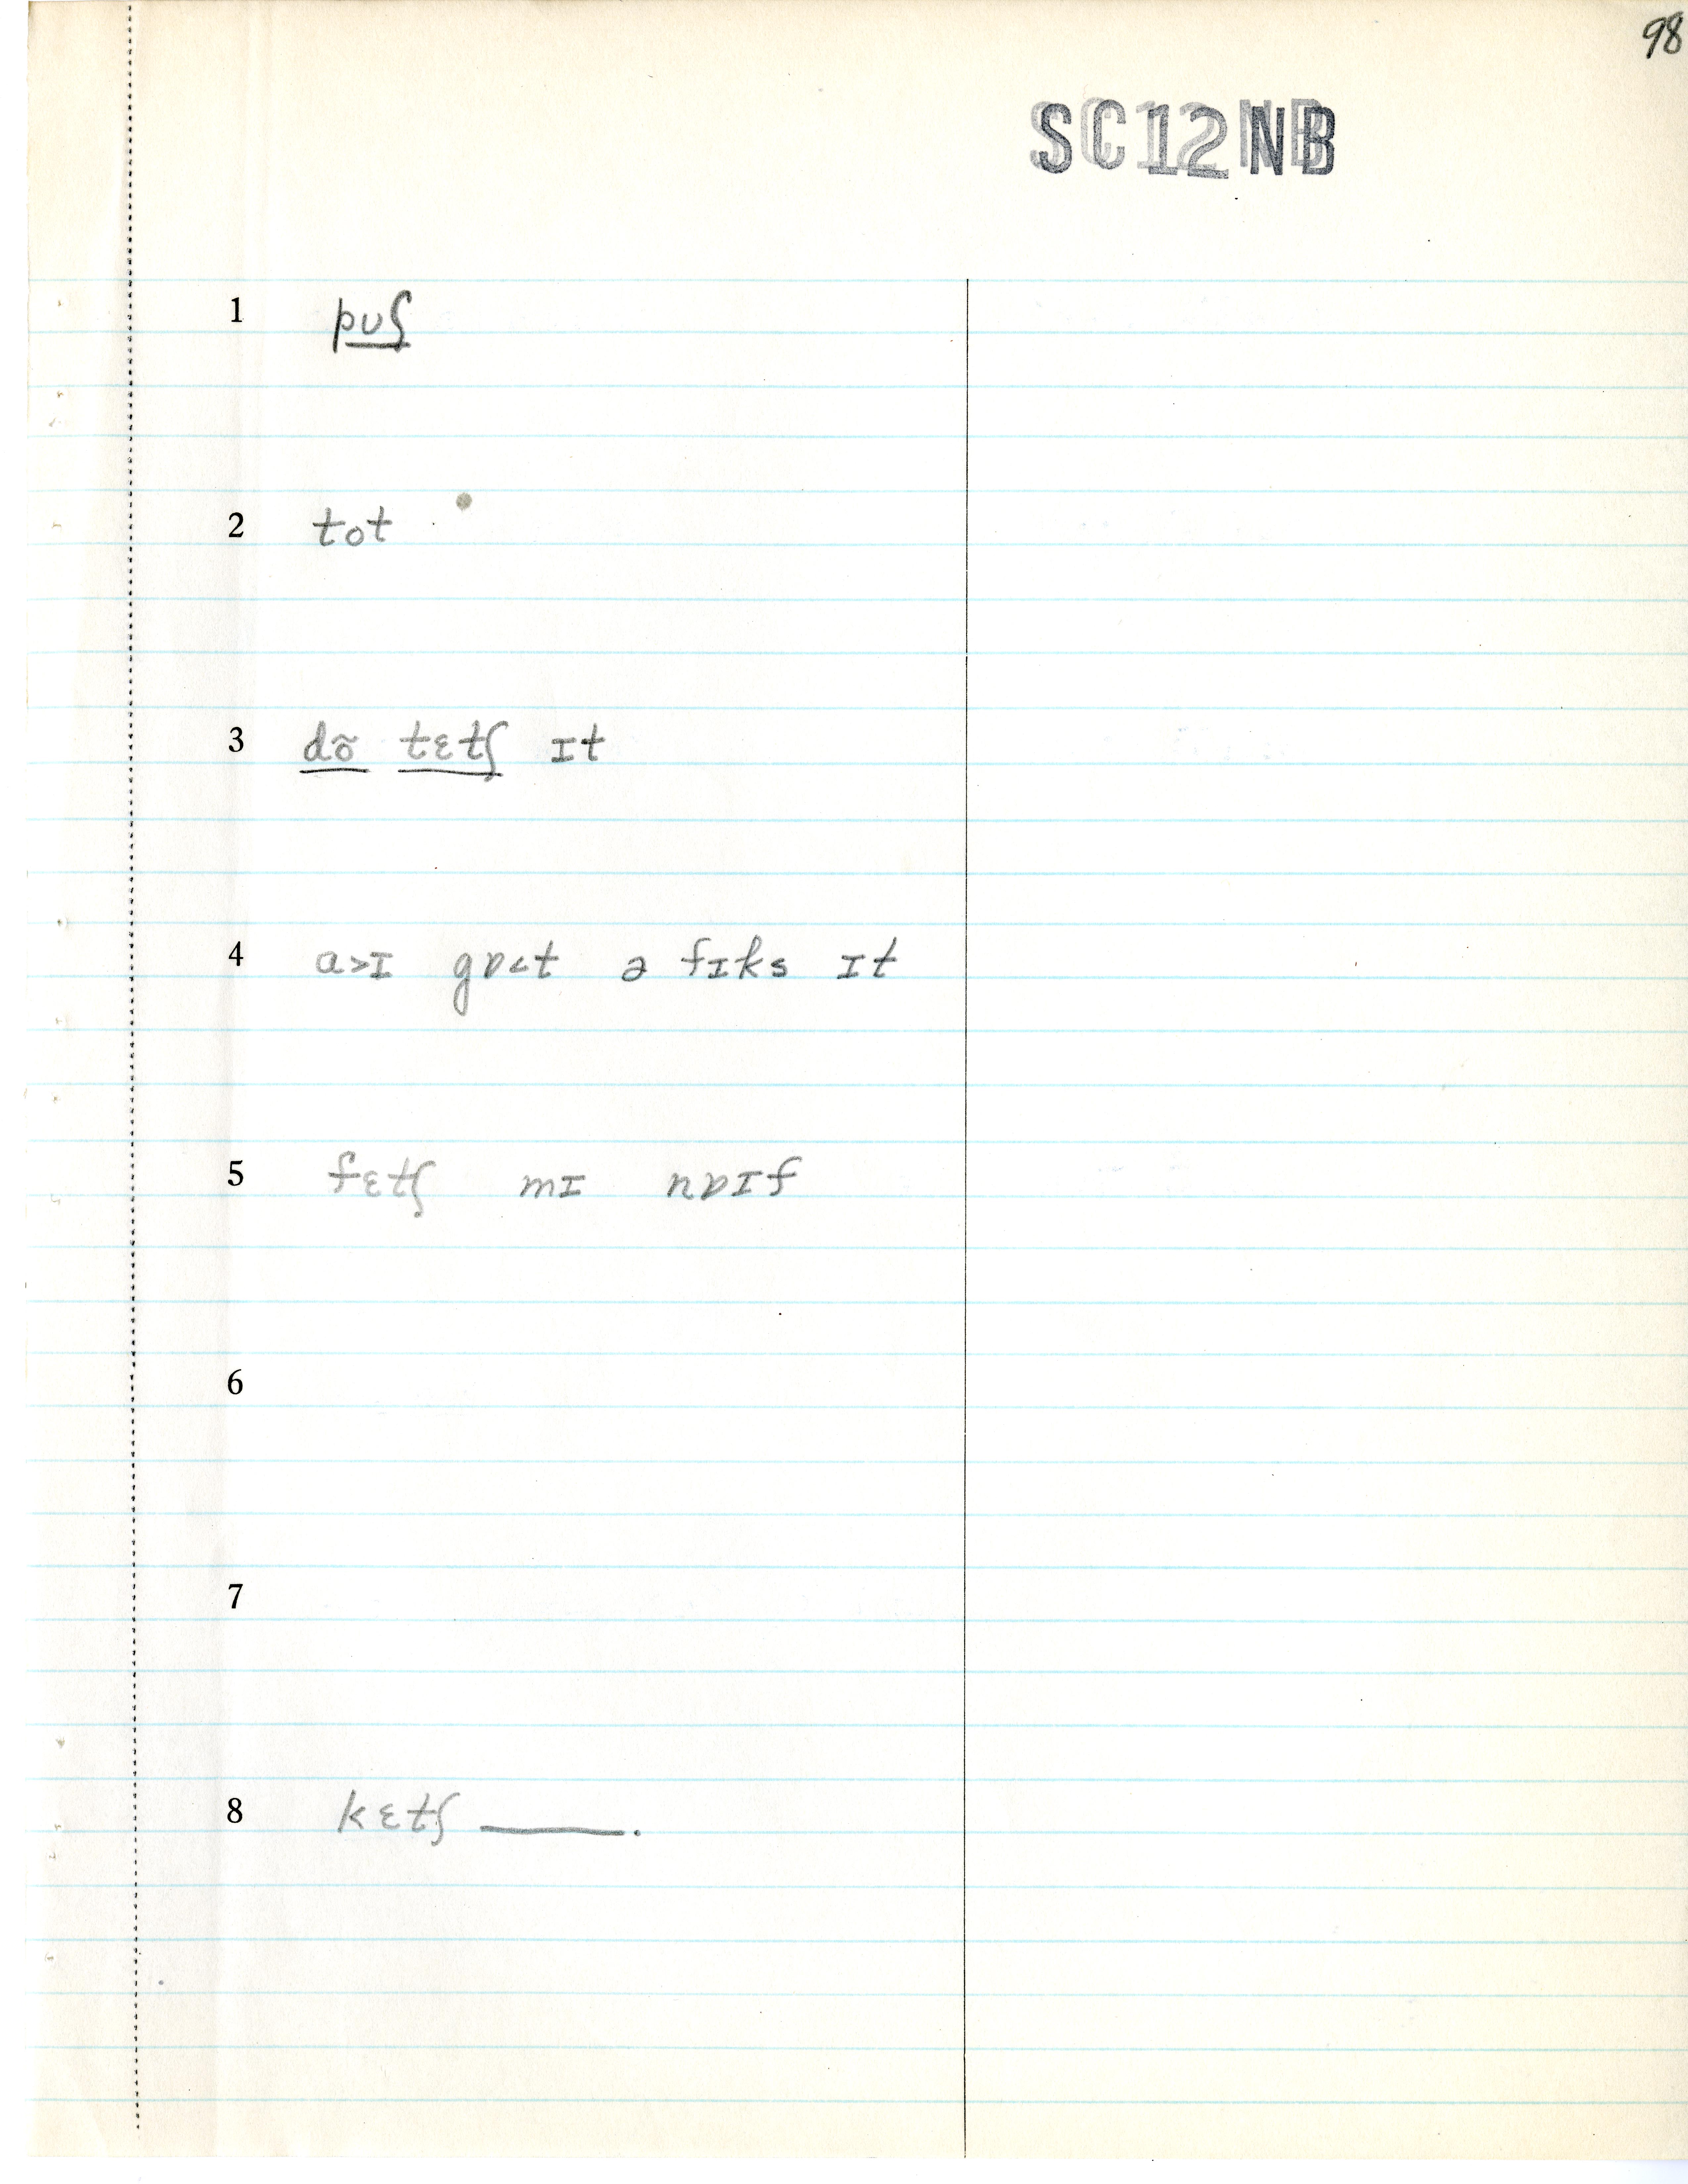 98
SC12NB
1 pʊʃ
2 tot
3 dõ tɛtʃ ɪt
4 ɑ>ɪ gɒ<t ə fɪks ɪt
5 fɛtʃ mɪ nɒɪf
6
7
8 kɛtʃ ____.